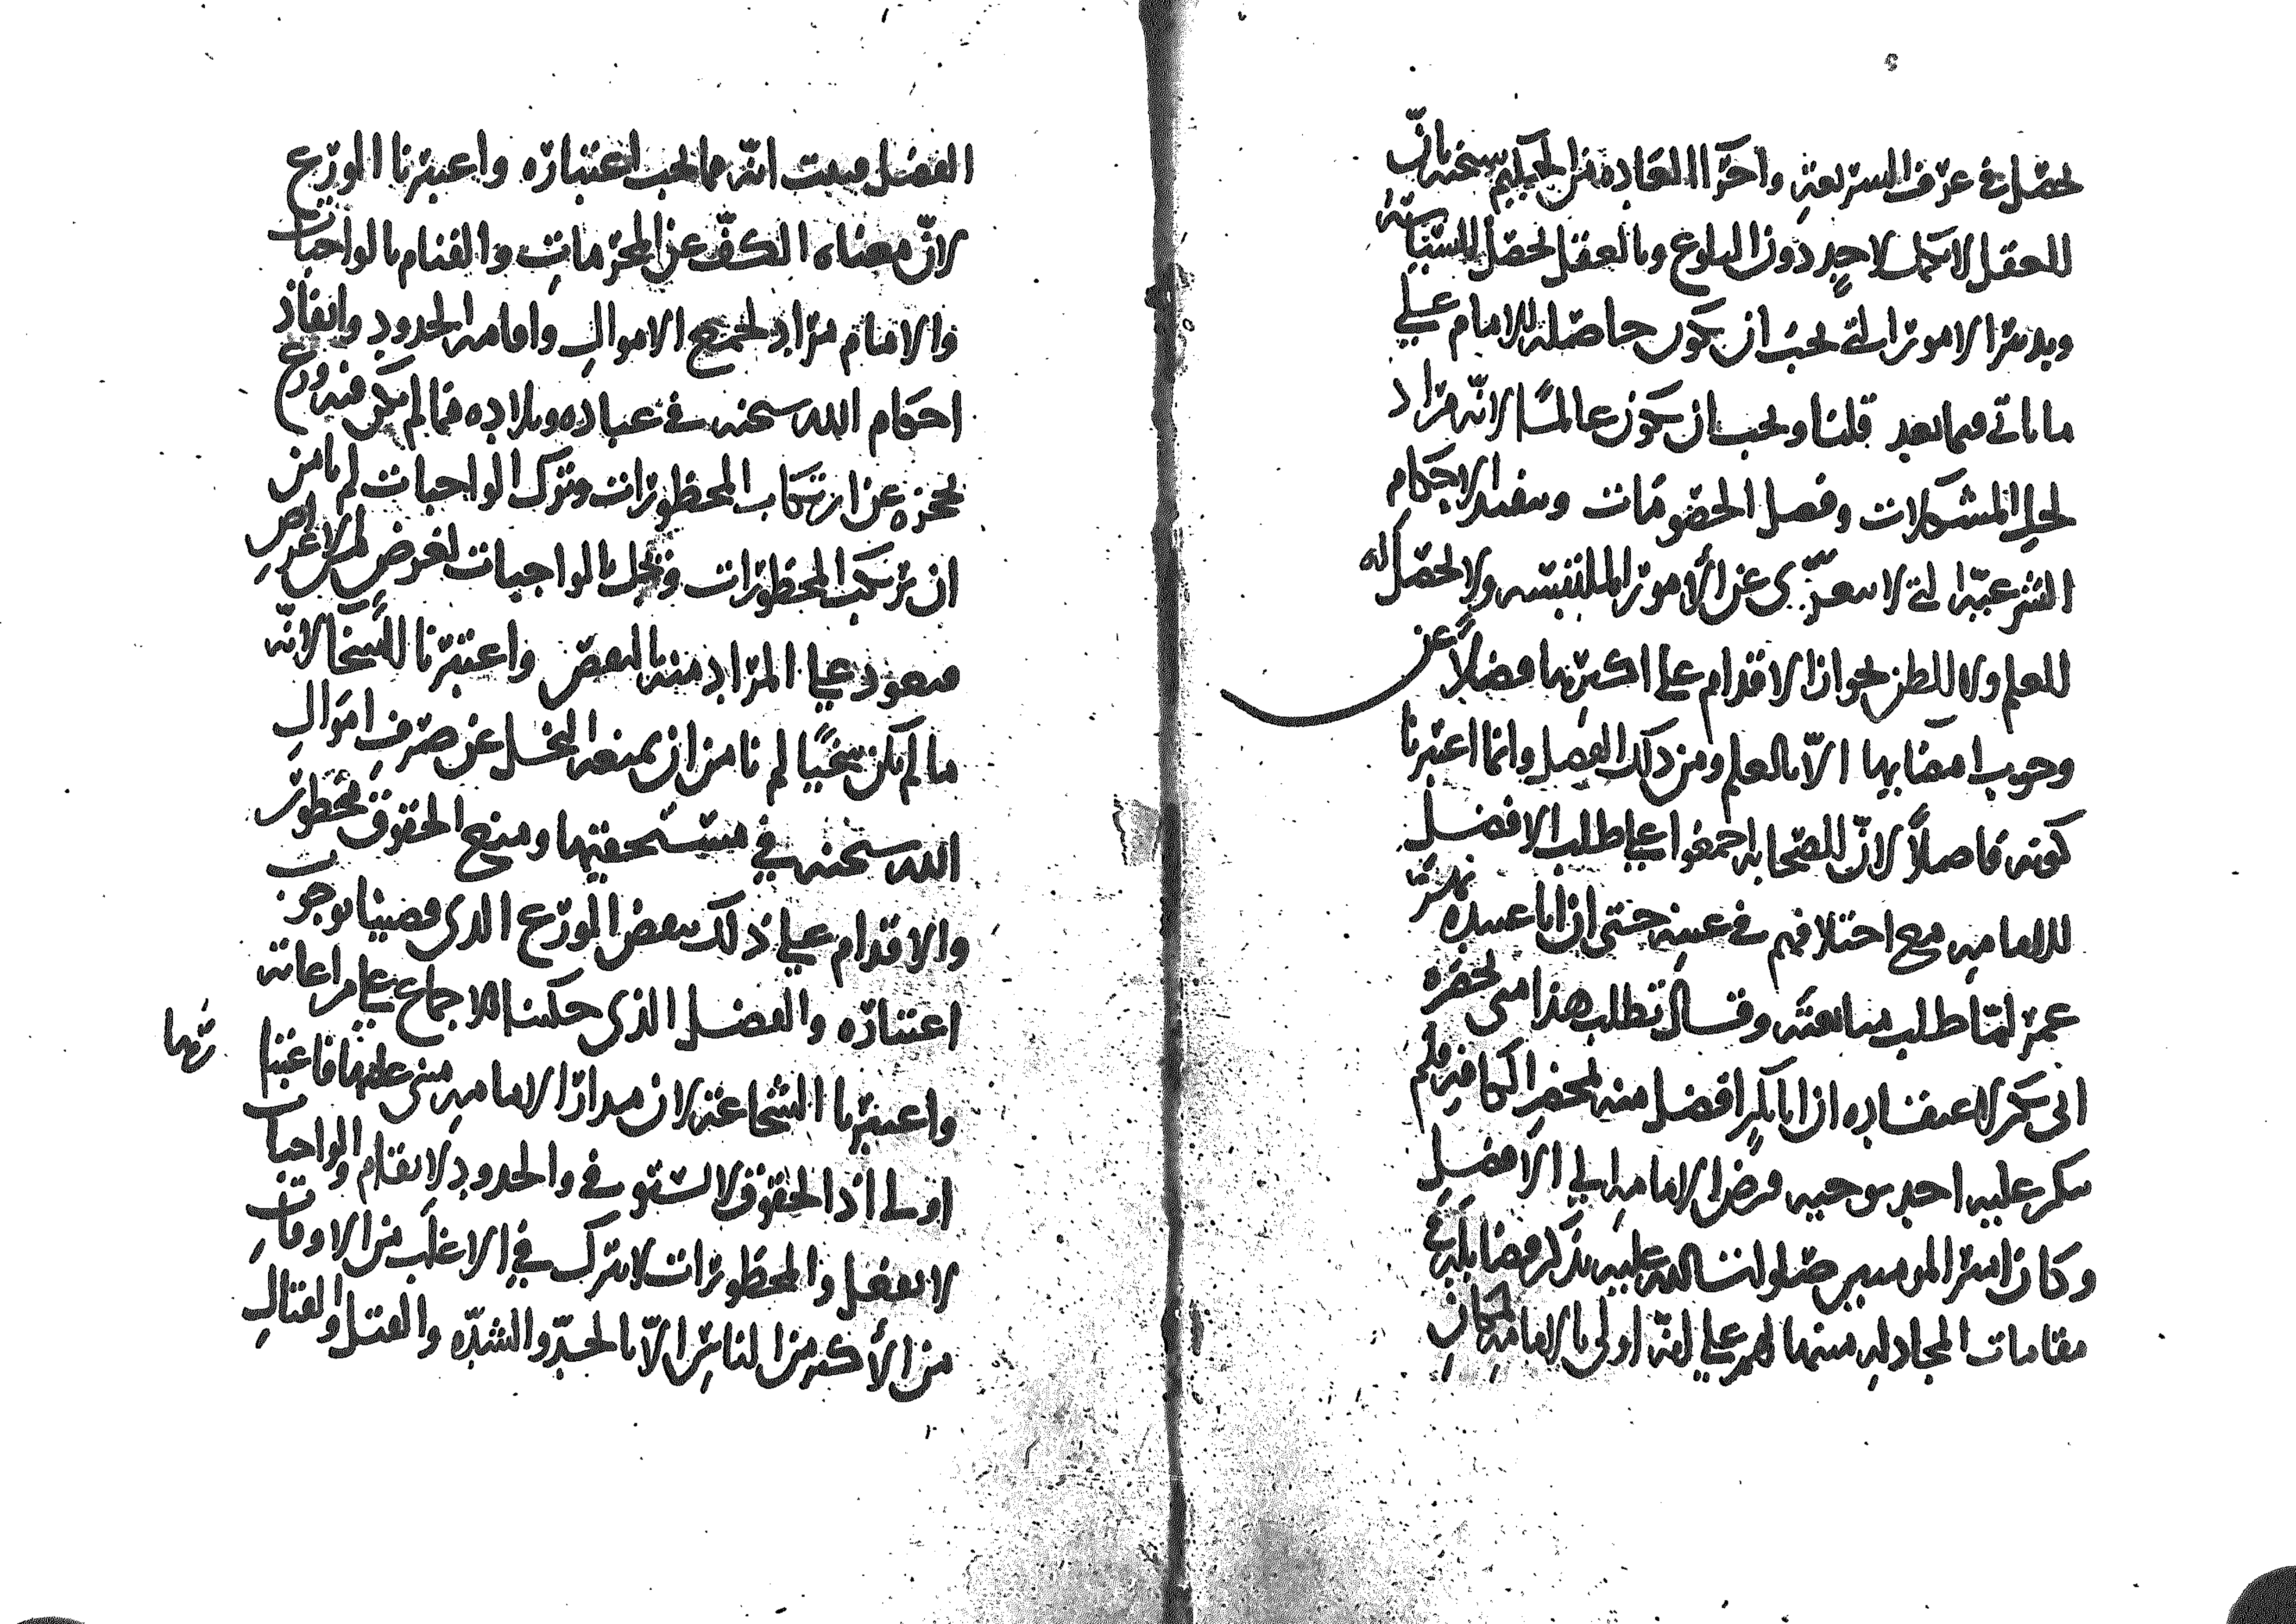 يحصل في عرف الشريعة واجرا العاده من الحكيم سبحنه بان
العقل لا يكمل لاحد دون البلوغ وبالعقل يحصل السياسه
وتدبير الامور التي يجب ان تكون حاصله للامام على
ما ياتي فيما بعد قلنا ويجب ان يكون عالما لانه يراد
لحل المشكلات وفصل الخصومات وتنفيذ الاحكام
الشرعيه التي لا تتعرى عن الأمور الملتبسه ولا تحصل له
العلم ولا الظن بجواز الاقدام على اكثرها فضلا عن
وجوب امضايها الا بالعلم ومن ذلك الفضل وانما اعتبرنا
كونه فاضلا لان الصحابه اجمعوا على طلب الافضل
للامامه مع اختلافهم في عينه حتى ان ابا عبيده نهر
عمر لما طلب مبايعته وقال تطلب هذا مني بحضره
ابي بكر لاعتقاده ان ابا بكر افضل منه بمحضر الكافه فلم
ينكر عليه احد توجيه فرض الامامه الى الافضل
وكان امير المومنين صلوات الله عليه يذكر فضايله في
مقامات المجادله منبها لهم على انه اولى بالامامه لمكان
الفضل فثبت انه مما يجب اعتباره واعتبرنا الورع
لان معناه الكف عن المحرمات والقيام بالواجبات
والامام يراد لجمع الاموال واقامه الحدود وانفاذ
احكام الله سبحنه في عباده وبلاده فما لم يكن فيه ورع
يحجزه عن ارتكاب المحظورات وترك الواجبات لم نامن
ان يرتكب المحظورات ويخل بالواجبات لغرض من الاغراض
فيعود على المراد منه بالنقض واعتبرنا السخا لانه
ما لم يكن سخيا لم نامن ان يمنعه البخل عن صرف اموال
الله سبحنه في مستحقيها ومنع الحقوق محظور
والاقدام على ذلك ينقض الورع الذي قضينا بوجوب
اعتباره والفضل الذي حكينا الاجماع على مراعاته
واعتبرنا الشجاعه لان مدار الامامه مبني عليها فاعتبا
رها
اولى اذ الحقوق لا تستوفى والحدود لا تقام والواجبات
لا تفعل والمحظورات لا تترك في الاغلب من الاوقات
من الأكثر من الناس الا بالحد والشده والقتل والقتال